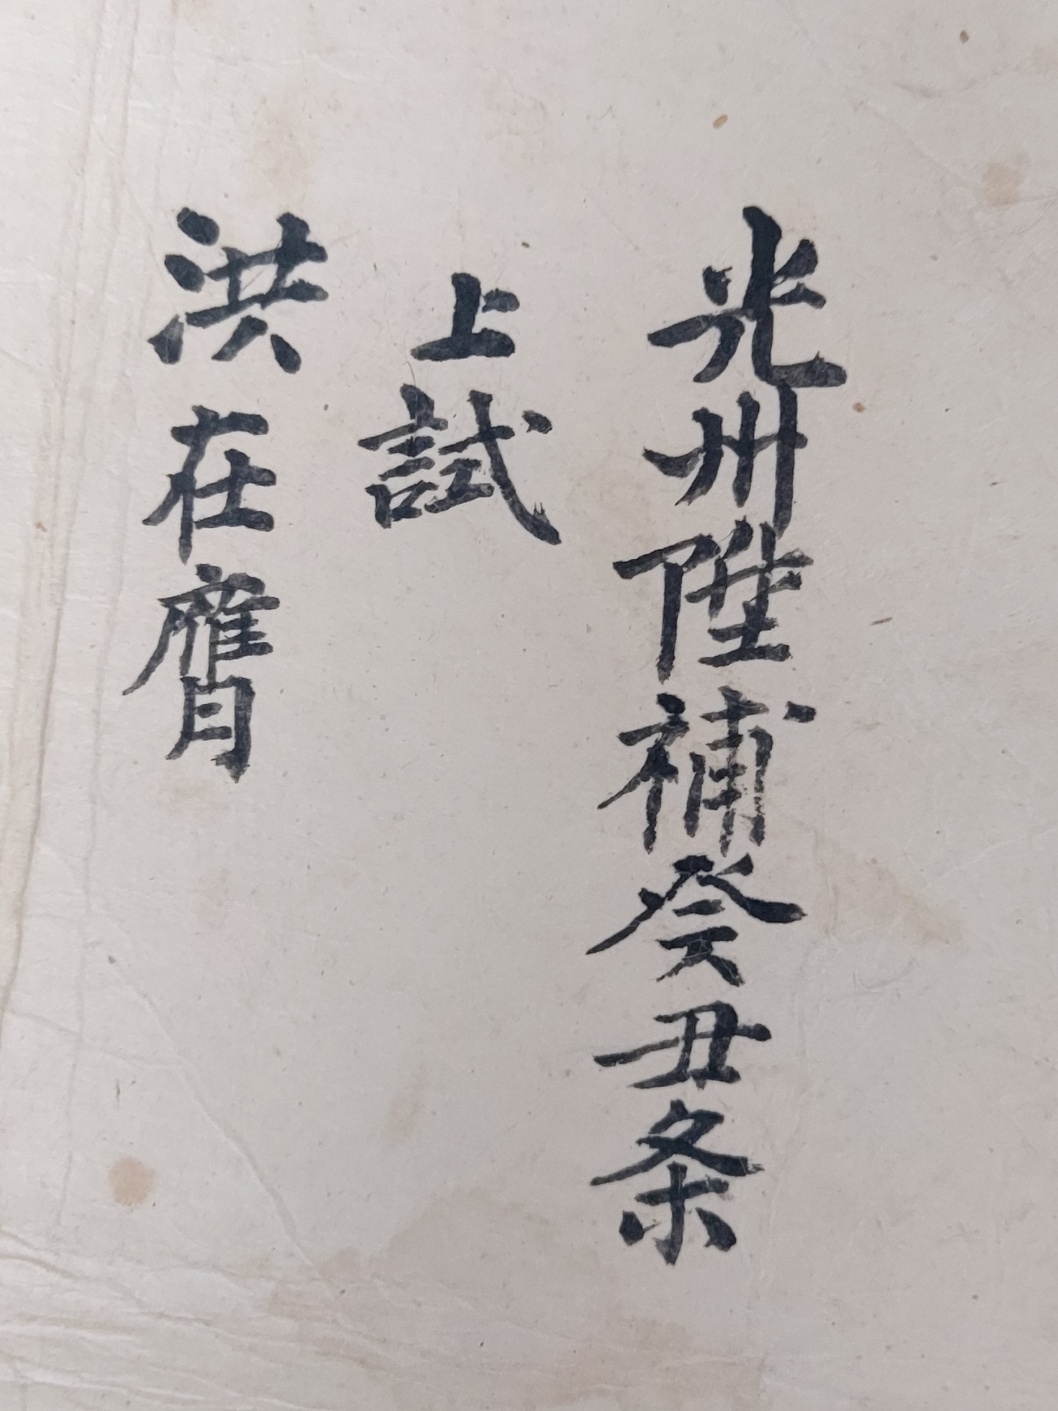 光州陞補癸丑条
上試
洪在膺